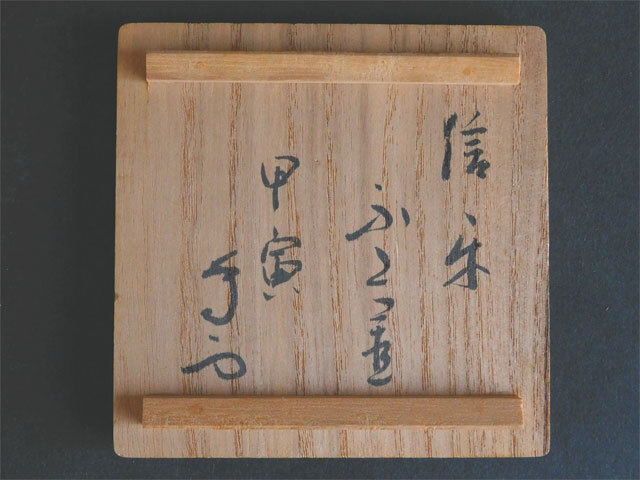 信楽
ふた置
甲寅